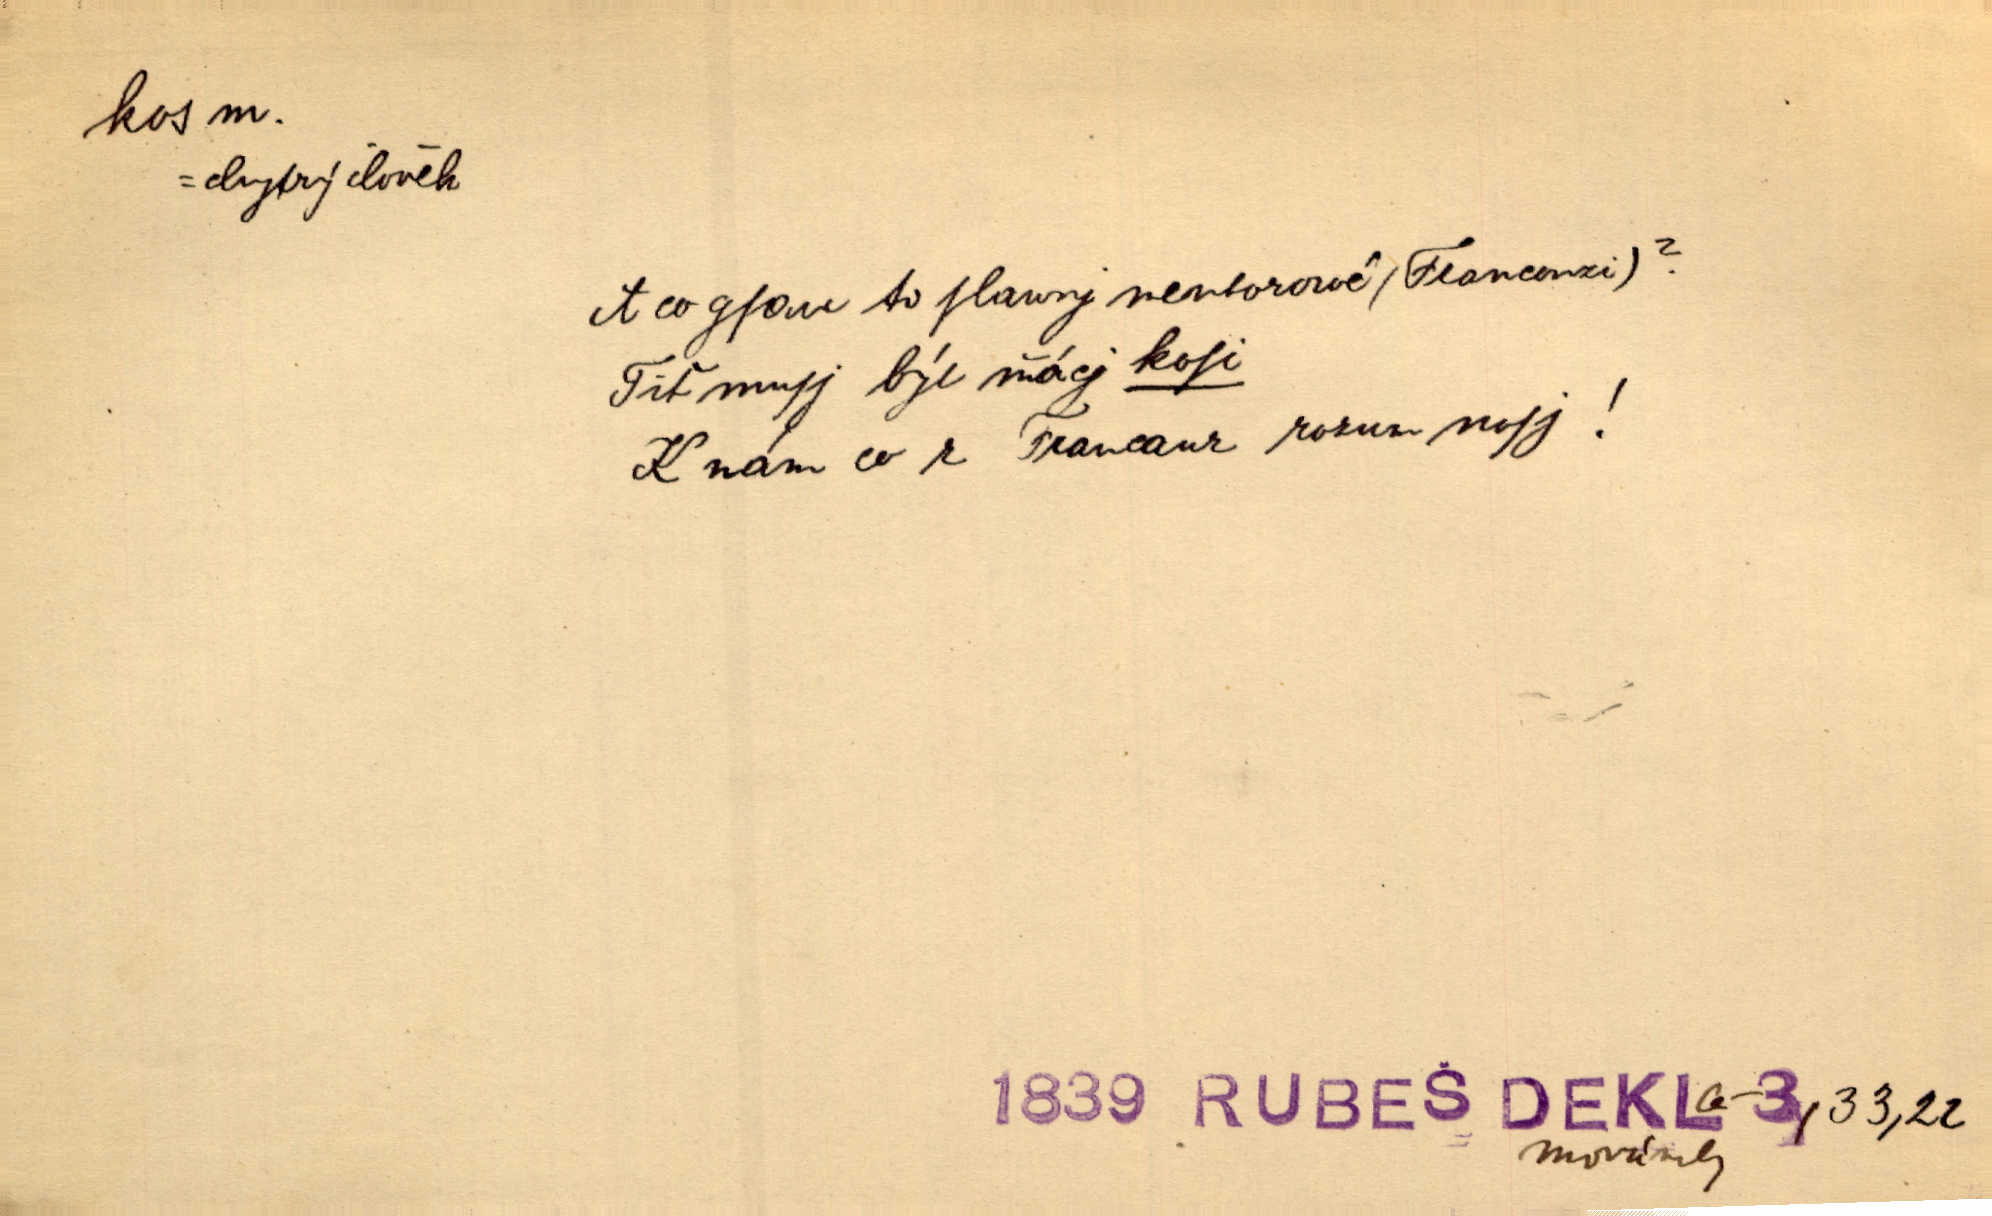 kos m.
= chytrý člověk
A co gsau to slawnj mentorowé (Francauzi)?
Tiť musj být ňácj kosi
K nám co z Francauz rozum nosj!
1839 RUBEŠ DEKLa- 3, 33,22
movánky